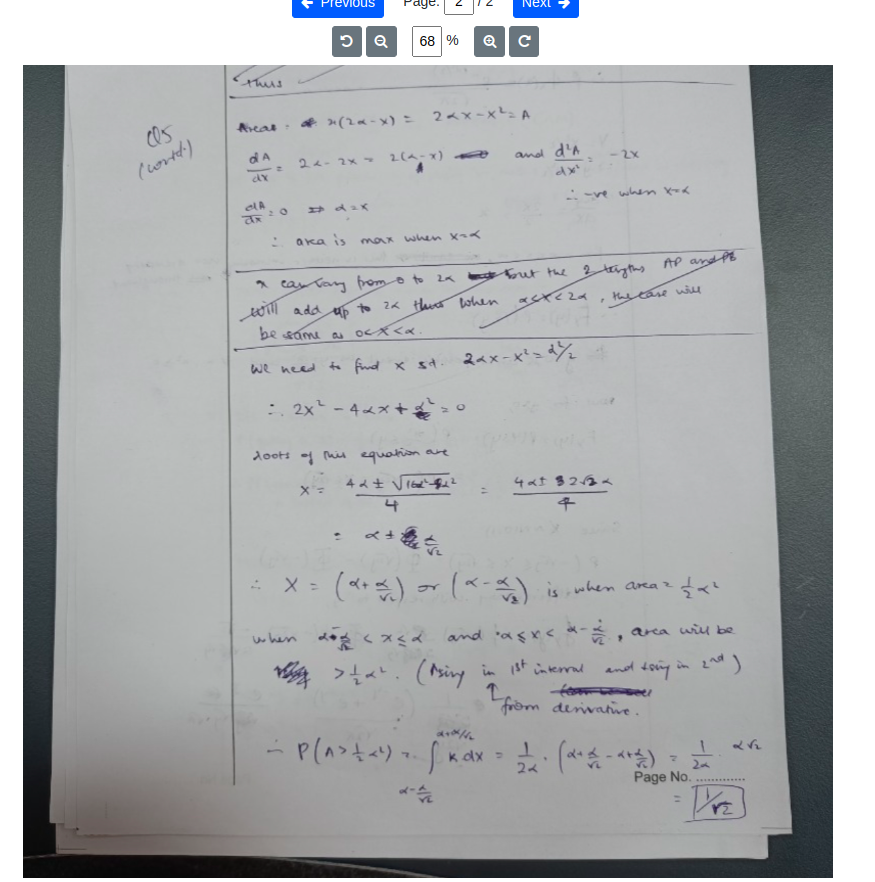 Previous Page: 2 / 2 Next
68 %
Thus
Q5
(contd.)
Area = x(2α-x) = 2αx-x² = A
dA/dx = 2α-2x = 2(α-x) and d²A/dx² = -2x
∴ -ve when x=α
dA/dx = 0 ⇒ α=x
∴ area is max when x=α
x can vary from 0 to 2α but the 2 lengths AP and PB
will add up to 2α thus when α<x<2α, the case will
be same as 0<x<α.
We need to find x st. 2αx-x² = α²/2
∴ 2x² - 4αx + α² = 0
roots of this equation are
x = (4α ± √(16α²-8α²))/4 = (4α ± 2√2 α)/4
= α ± α/√2
∴ X = (α+α/√2) or (α-α/√2) is when area = 1/2 α²
when α-α/√2 < x ≤ α and α ≤ x < α-α/√2, area will be
> 1/2 α². (rising in 1st interval and in 2nd)
from derivative.
∴ P(A > 1/2 α²) = ∫ α-α/√2 α+α/√2 k dx = 1/2α · (α+α/√2 -α+α/√2) = 1/2α · α√2
Page No. ..............
= 1/√2